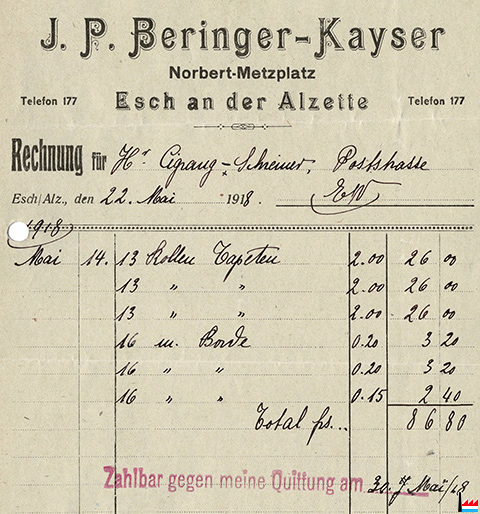 J. P. Beringer-Kayser
Norbert-Metzplatz
Telefon 177 Esch an der Alzette Telefon 177
Rechnung für Hr Cigrang-Schreiner, Poststrasse
Esch/Alz., den 22. Mai 1918. Esch
1918
Mai 14. 13 Rollen Tapeten 2.00 26 00
13 " " 2.00 26 00
13 " " 2.00 26 00
16 m. Borde 0.20 3 20
16 " " 0.20 3 20
16 " " 0.15 2 40
Total frs... 86 80
Zahlbar gegen meine Quittung am 30. Mai/18